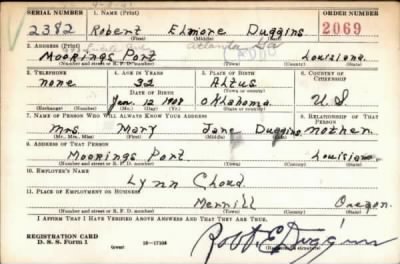 SERIAL NUMBER 1. NAME (Print) ORDER NUMBER
2382 Robert Elmore Duggins 2069
(First) (Middle) (Last)
2. ADDRESS (Print) Atlanta Ga
Moorings Port Louisiana
(Number and street or R. F. D. number) (Town) (County) (State)
3. TELEPHONE 4. AGE IN YEARS 5. PLACE OF BIRTH 6. COUNTRY OF CITIZENSHIP
none 32 Altus
DATE OF BIRTH (Town or county)
Jan. 12 1908 Oklahoma U S
(Exchange) (Number) (Mo.) (Day) (Yr.) (State or country)
7. NAME OF PERSON WHO WILL ALWAYS KNOW YOUR ADDRESS 8. RELATIONSHIP OF THAT PERSON
Mrs. Mary Jane Duggins mother
(Mr., Mrs., Miss) (First) (Middle) (Last)
9. ADDRESS OF THAT PERSON
Moorings Port Louisiana
(Number and street or R. F. D. number) (Town) (County) (State)
10. EMPLOYER'S NAME
Lynn Choud
11. PLACE OF EMPLOYMENT OR BUSINESS
Merrill Oregon
(Number and street or R. F. D. number) (Town) (County) (State)
I AFFIRM THAT I HAVE VERIFIED ABOVE ANSWERS AND THAT THEY ARE TRUE.
REGISTRATION CARD
D. S. S. Form 1 (over) 16—17105 Robt. E. Duggins